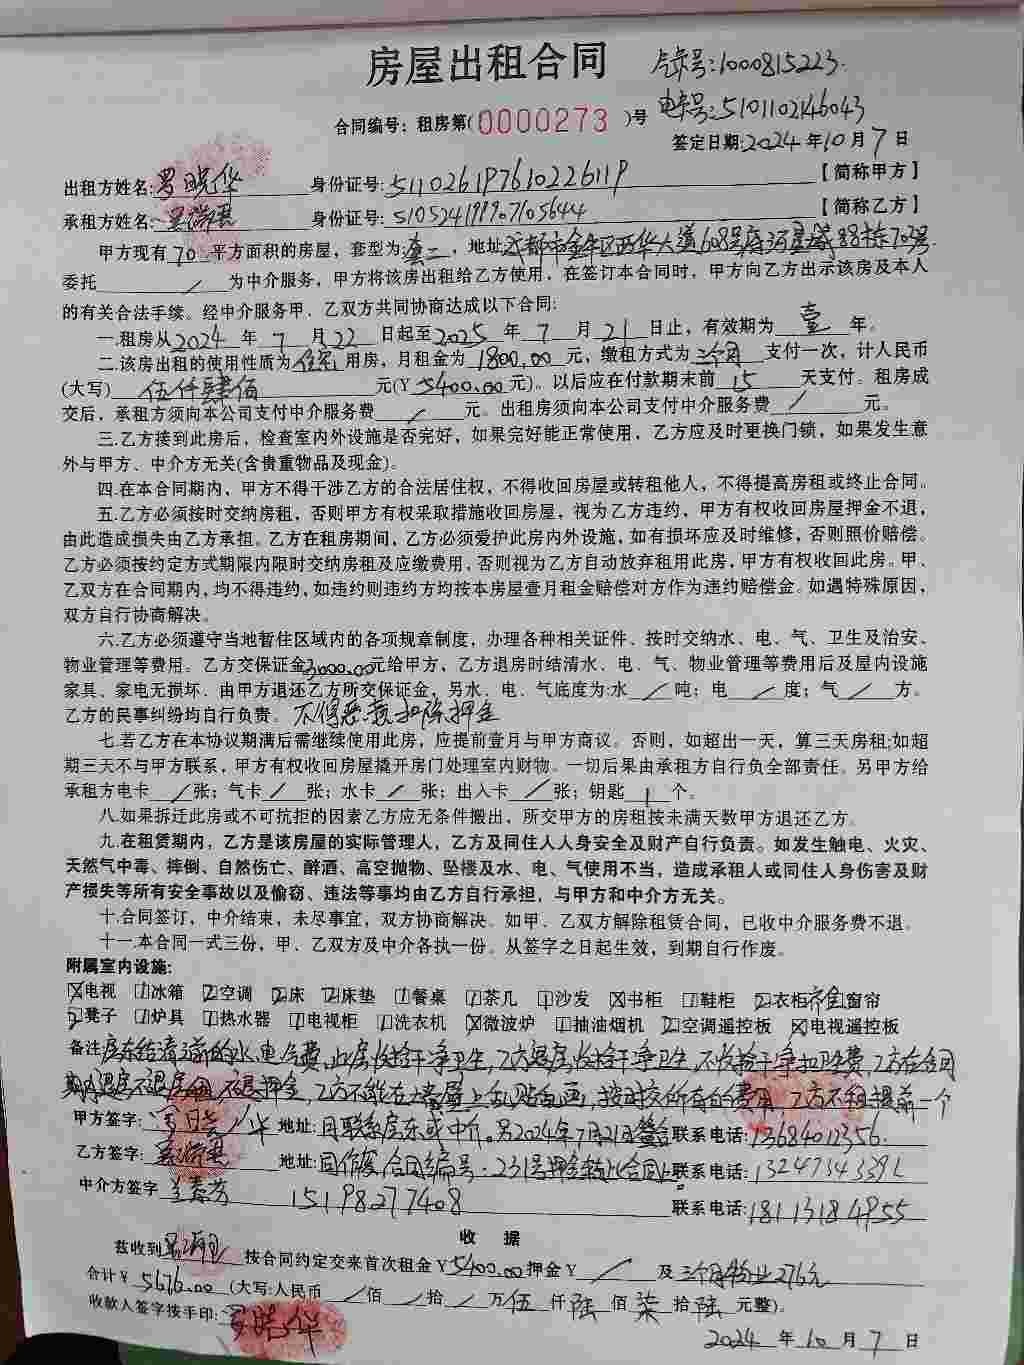 房屋出租合同
气卡号:1000815223.
合同编号：租房第(0000273)号 电卡号:5101102146043
签定日期:2024年10月7日
出租方姓名:罗晓华 身份证号:511026197610226119 【简称甲方】
承租方姓名: 身份证号:510524199907105644 【简称乙方】
甲方现有70平方面积的房屋，套型为套二，地址:成都市金牛区西华大道608号 88栋702号
委托 / 为中介服务，甲方将该房出租给乙方使用，在签订本合同时，甲方向乙方出示该房及本人
的有关合法手续。经中介服务甲、乙双方共同协商达成以下合同:
一.租房从2024年7月22日起至2025年7月21日止，有效期为壹年。
二.该房出租的使用性质为住宅用房，月租金为1800.00元，缴租方式为三个月支付一次，计人民币
(大写)伍仟肆佰元(￥5400.00元)。以后应在付款期末前15天支付。租房成
交后，承租方须向本公司支付中介服务费 / 元。出租房须向本公司支付中介服务费 / 元。
三.乙方接到此房后，检查室内外设施是否完好，如果完好能正常使用，乙方应及时更换门锁，如果发生意
外与甲方、中介方无关(含贵重物品及现金)。
四.在本合同期内，甲方不得干涉乙方的合法居住权，不得收回房屋或转租他人，不得提高房租或终止合同。
五.乙方必须按时交纳房租，否则甲方有权采取措施收回房屋，视为乙方违约，甲方有权收回房屋押金不退，
由此造成损失由乙方承担。乙方在租房期间，乙方必须爱护此房内外设施，如有损坏应及时维修，否则照价赔偿。
乙方必须按约定方式期限内限时交纳房租及应缴费用，否则视为乙方自动放弃租用此房，甲方有权收回此房。甲、
乙双方在合同期内，均不得违约，如违约则违约方均按本房屋壹月租金赔偿对方作为违约赔偿金。如遇特殊原因，
双方自行协商解决。
六.乙方必须遵守当地暂住区域内的各项规章制度，办理各种相关证件、按时交纳水、电、气、卫生及治安、
物业管理等费用。乙方交保证金3000.00元给甲方，乙方退房时结清水、电、气、物业管理等费用后及屋内设施
家具、家电无损坏、由甲方退还乙方所交保证金，另水、电、气底度为:水 / 吨；电 / 度；气 / 方。
乙方的民事纠纷均自行负责。不得恶意扣除押金
七.若乙方在本协议期满后需继续使用此房，应提前壹月与甲方商议。否则，如超出一天，算三天房租;如超
期三天不与甲方联系，甲方有权收回房屋撬开房门处理室内财物。一切后果由承租方自行负全部责任。另甲方给
承租方电卡 / 张；气卡 / 张；水卡 / 张；出入卡 / 张；钥匙 1 个。
八.如果拆迁此房或不可抗拒的因素乙方应无条件搬出，所交甲方的房租按未满天数甲方退还乙方。
九.在租赁期内，乙方是该房屋的实际管理人，乙方及同住人人身安全及财产自行负责。如发生触电、火灾、
天然气中毒、摔倒、自然伤亡、醉酒、高空抛物、坠楼及水、电、气使用不当，造成承租人或同住人身伤害及财
产损失等所有安全事故以及偷窃、违法等事均由乙方自行承担，与甲方和中介方无关。
十.合同签订，中介结束，未尽事宜，双方协商解决。如甲、乙双方解除租赁合同，已收中介服务费不退。
十一.本合同一式三份，甲、乙双方及中介各执一份。从签字之日起生效，到期自行作废。
附属室内设施:
X电视 1冰箱 2空调 2床 2床垫 1餐桌 1茶几 1沙发 X书柜 1鞋柜 2衣柜 齐全窗帘
2凳子 1炉具 1热水器 1电视柜 1洗衣机 X微波炉 1抽油烟机 2空调遥控板 X电视遥控板
备注:房东结清之前的水、电、气费，此房收拾干净卫生，乙方退房收拾干净卫生，不收拾干净扣卫生费，乙方在合同
期内退房不退房租，不退押金，乙方不能在墙壁上乱贴乱画，按时交所有的费用，乙方不租提前一个
甲方签字:罗晓华 地址:月联系房东或中介。另2024年7月21日签合 联系电话:13684012356.
乙方签字: 地址:同作废，合同编号:231号押金转此合同上。 联系电话:
中介方签字 兰春芳 15198277408 联系电话:18113184955
收 据
兹收到 按合同约定交来首次租金￥5400.00押金￥ / 及三个月物业276元
合计￥5676.00(大写:人民币 / 佰 / 拾 / 万伍仟陆佰柒拾陆元整)。
收款人签字按手印:罗晓华
2024年10月7日